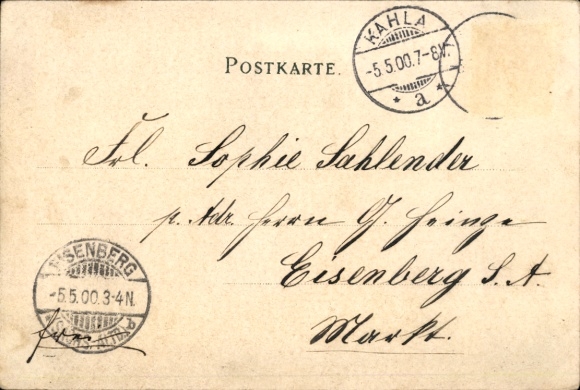 POSTKARTE.
KAHLA
-5.5.00.7-8V.
* a *
Frl. Sophie Sahlender
p. Adr. Herrn G. Heinze
Eisenberg S. A.
Markt.
EISENBERG
-5.5.00.3-4N.
(SACHS.-ALTB.) b
frei